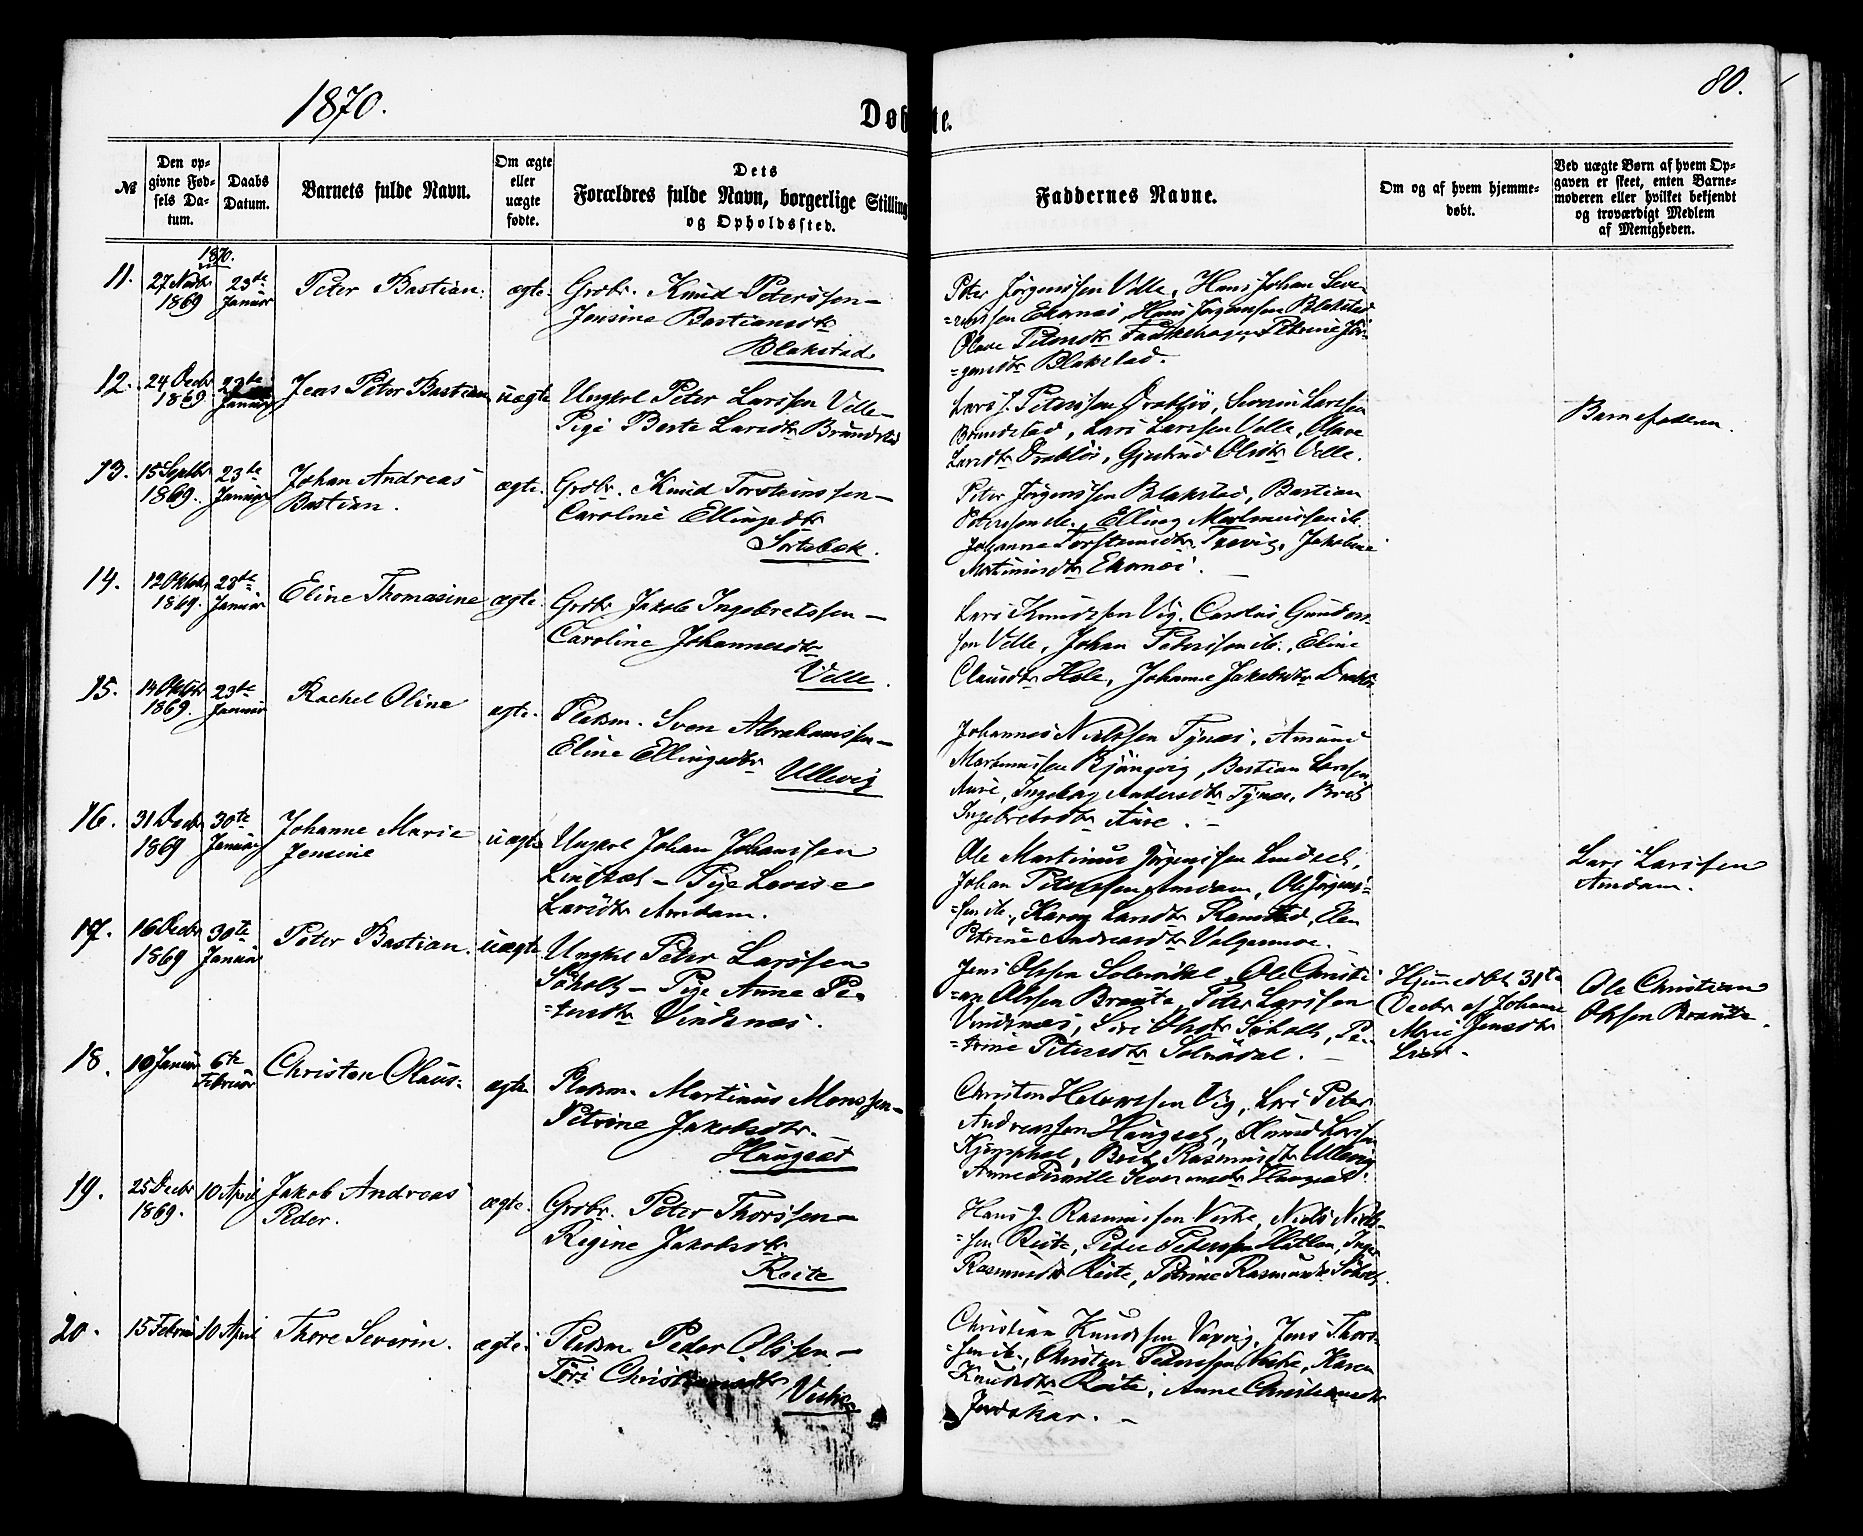 1870.
Døbte.
80.
№
Den op-
givne Fød-
sels Da-
tum.
Daabs
Datum.
Barnets fulde Navn.
Om ægte
eller
uægte
fødte.
Dets
Forældres fulde Navn, borgerlige Stilling
og Opholdssted.
Faddernes Navne.
Om og af hvem hjemme-
døbt.
Ved uægte Børn af hvem Op-
gaven er skeet, enten Barne-
moderen eller hvilket bekjendt
og troværdigt Medlem
af Menigheden.
11.
27 Novbr
1869
1870.
23de
Januar
Peter Bastian.
ægte.
Grdbr. Knud Peterssen –
Jensine Bastiansdtr
Blakstad
Peter Jørgenssen Velle, Hans Johan Seve-
=rinssen Ekornæs, Hans Jørgenssen Blakstad
Olave Petersdtr Petrine Jør-
=gensdtr Blakstad.
12.
24 Decbr
1869
23de
Januar
Jens Peter Bastian
uægte
Ungkrl Peter Larssen Velle –
Pige Berte Larsdtr Brundstad
Lars J. Peterssen Drabløs, Severin Larssen
Brundstad, Lars Larssen Velle, Olave
Larsdtr Drabløs, Gjertrud Olsdtr Velle.
Barnefaderen.
13.
15 Septbr
1869.
23de
Januar
Johan Andreas
Bastian.
ægte.
Grdbr. Knud Torsteinssen –
Caroline Ellingsdtr
Sortebæk.
Peter Jørgenssen Blakstad, Bastian
Peterssen ib., Elling Martinussen ib.
Johanne Torsteinsdtr Jakobine
Martinusdtr Ekornæs.
14.
12 Oktbr
1869.
23de
Januar
Eline Thomasine
ægte.
Grdbr Jakob Ingebretssen –
Caroline Johannesdtr
Velle.
Lars Knudssen Vig, Carolus Gunders-
sen Velle, Johan Peterssen ib., Eline
Clausdtr Hole, Johanne Jakobsdtr
15.
14 Oktbr
1869.
23de
Januar
Rachel Oline
ægte.
Pladsm. Sven Abrahamssen –
Eline Ellingsdtr
Ullevig
Johannes Nielssen Tynæs, Amund
Martinussen Bjørgvig, Bastian Larssen
Aure, Ingeborg Andersdtr Tynæs, Brit
Ingebretsdtr Aure.
16.
31 Decbr
1869
30te
Januar
Johanne Marie
Jensine
uægte
Ungkrl Johan Johanssen
Lindset – Pige Lovise
Larsdtr Amdam.
Ole Martinus Jørgenssen Lindset,
Johan Peterssen Amdam, Ole Jørgens-
=sen ib., Karen Larsdtr Ramstad, Elen
Petrine Andreasdtr
Lars Larssen
Amdam.
17.
16 Decbr
1869
30te
Januar
Peter Bastian.
uægte
Ungkrl Peter Larssen
Søholt – Pige Anne Pe-
=tersdtr Vindsnæs.
Jens Olssen Solnødal, Ole Christi
=an Olssen Braute, Peter Larssen
Vindsnæs, Siri Olsdtr Søholt, Pe-
=trine Petersdtr Solnødal.
Hjemmedøbt 31te
Decbr af Johanne
Marie Jensdtr
Ole Christian
Olssen Braute.
18.
10 Januar
6te
Februar
Christen Olaus.
ægte.
Pladsm. Martinus Monssen –
Petrine Jakobsdtr.
Haugsæt
Christen Halvorssen Vig, Lars Peter
Andreassen Haugsæt, Knud Larssen
Brit Rasmusdtr Ullevig
Anne Severinsdtr Haugsæt.
19.
25 Decbr
1869.
10 April
Jakob Andreas
Peder.
ægte.
Grdbr. Peter Thorssen –
Regine Jakobsdtr
Reite
Hans J. Rasmussen Viske, Niels Niels-
=sen Reite, Peter Peterssen Hatlen, Inger
Rasmusdtr Reite, Petrine Rasmusdtr Søholt.
20.
15 Februar
10 April
Thore Severin.
ægte.
Pladsm Peder Olssen –
Siri Christiansdtr
Viske
Christian Knudssen Vaxvig, Jens Thors-
=sen ib., Christen Pederssen Viske, Karen
Knudsdtr Reite, Anne Christiansdtr